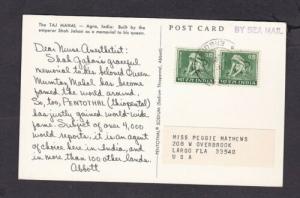 The TAJ MAHAL — Agra, India: Built by the
emperor Shah Jehan as a memorial to his queen.
Dear Nurse Anesthetist:
Shah Jahan's graceful
memorial to his beloved Queen
Mumtaz Mahal has become
famed the world around.
So, too, PENTOTHAL (thiopental)
has justly gained world-wide
fame. Subject of over 4,000
world reports, it is an agent
of choice here in India, and
in more than 100 other lands.
Abbott
PENTOTHAL® SODIUM (Sodium Thiopental, Abbott)
POST CARD
BY SEA MAIL
MISS PEGGIE MATHEWS
208 W OVERBROOK
LARGO FLA 33540
U S A